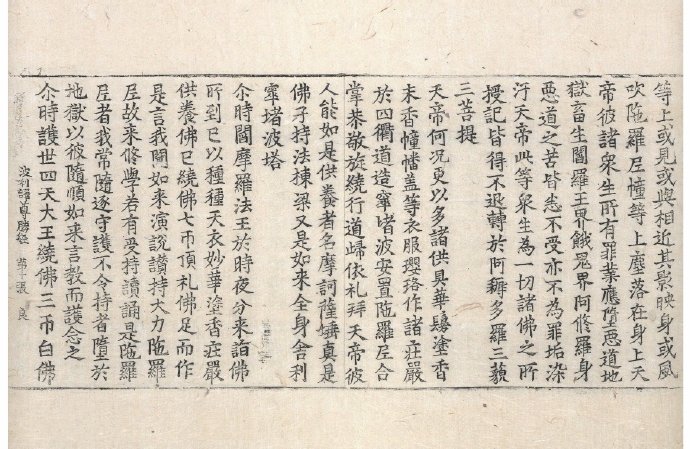 等上或見或與相近其影映身或風
吹陁羅尼幢等上塵落在身上天
帝彼諸衆生所有罪業應墮惡道地
獄畜生閻羅王界餓鬼界阿脩羅身
惡道之苦皆悉不受亦不為罪垢染
汙天帝此等衆生為一切諸佛之所
授記皆得不退轉於阿耨多羅三藐
三菩提
天帝何况更以多諸供具華鬘塗香
末香幢幡盖等衣服瓔珞作諸莊嚴
於四衢道造窣堵波安置陁羅尼合
掌恭敬旋繞行道歸依礼拜天帝彼
人能如是供養者名摩訶薩埵真是
佛子持法棟梁又是如来全身舍利
窣堵波塔
尒時閻摩羅法王於時夜分来詣佛
所到已以種種天衣妙華塗香莊嚴
供養佛已繞佛七帀頂礼佛足而作
是言我聞如来演說讃持大力陁羅
尼故来修學若有受持讀誦是陁羅
尼者我常隨逐守護不令持者墮於
地獄以彼隨順如来言教而護念之
尒時護世四天大王繞佛三帀白佛
波利譯尊勝經 良